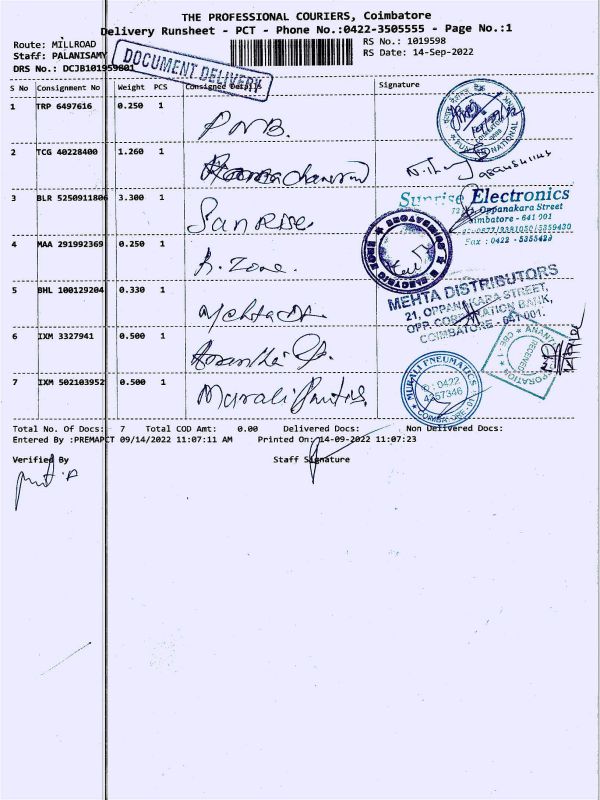 THE PROFESSIONAL COURIERS, Coimbatore
Delivery Runsheet - PCT - Phone No.:0422-3505555 - Page No.:1
Route: MILLROAD
RS No.: 1019598
Staff: PALANISAMY
RS Date: 14-Sep-2022
DRS No.: DCJB101959801
DOCUMENT DELIVERY
S No Consignment No Weight PCS Consignee Details Signature
1 TRP 6497616 0.250 1 PNB.
2 TCG 40228400 1.260 1
3 BLR 5250911806 3.300 1 Sanrise
Sunrise Electronics
Oppanakara Street
Coimbatore - 641 001
Fax : 0422 - 5355429
4 MAA 291992369 0.250 1 R. Zone.
5 BHL 100129204 0.330 1
MEHTA DISTRIBUTORS
21, OPPANAKARA STREET,
OPP. CORPORATION BANK,
COIMBATORE - 641 001.
6 IXM 3327941 0.500 1
7 IXM 502103952 0.500 1 Murali
MURALI PNEUMATICS
0422
4257346
COIMBATORE-01
RECEIVED
Total No. Of Docs: 7 Total COD Amt: 0.00 Delivered Docs: Non Delivered Docs:
Entered By :PREMAPCT 09/14/2022 11:07:11 AM Printed On: 14-09-2022 11:07:23
Verified By Staff Signature